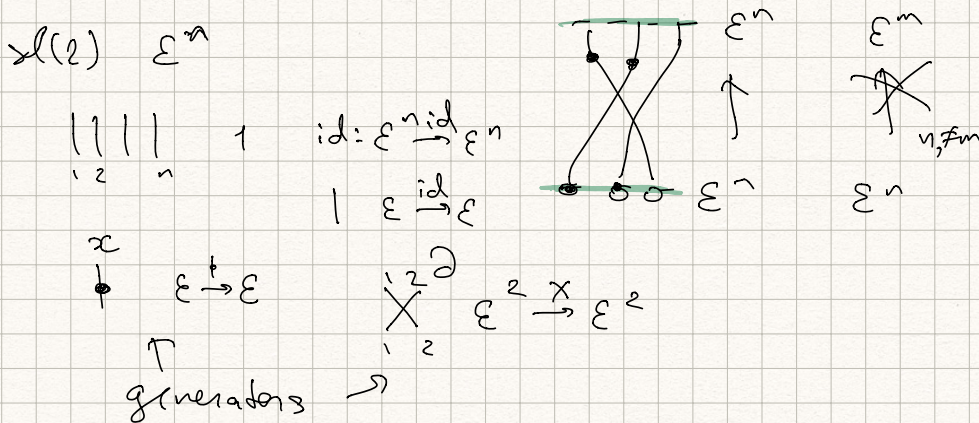 sl(2) ℰⁿ
ℰⁿ ℰᵐ
| | | | 1 id: ℰⁿ →^{id} ℰⁿ
1 2 n
n≠m
| ℰ →^{id} ℰ
ℰⁿ ℰⁿ
x
ℰ → ℰ
1 2 ∂
ℰ² →^{X} ℰ²
1 2
↑
generators →